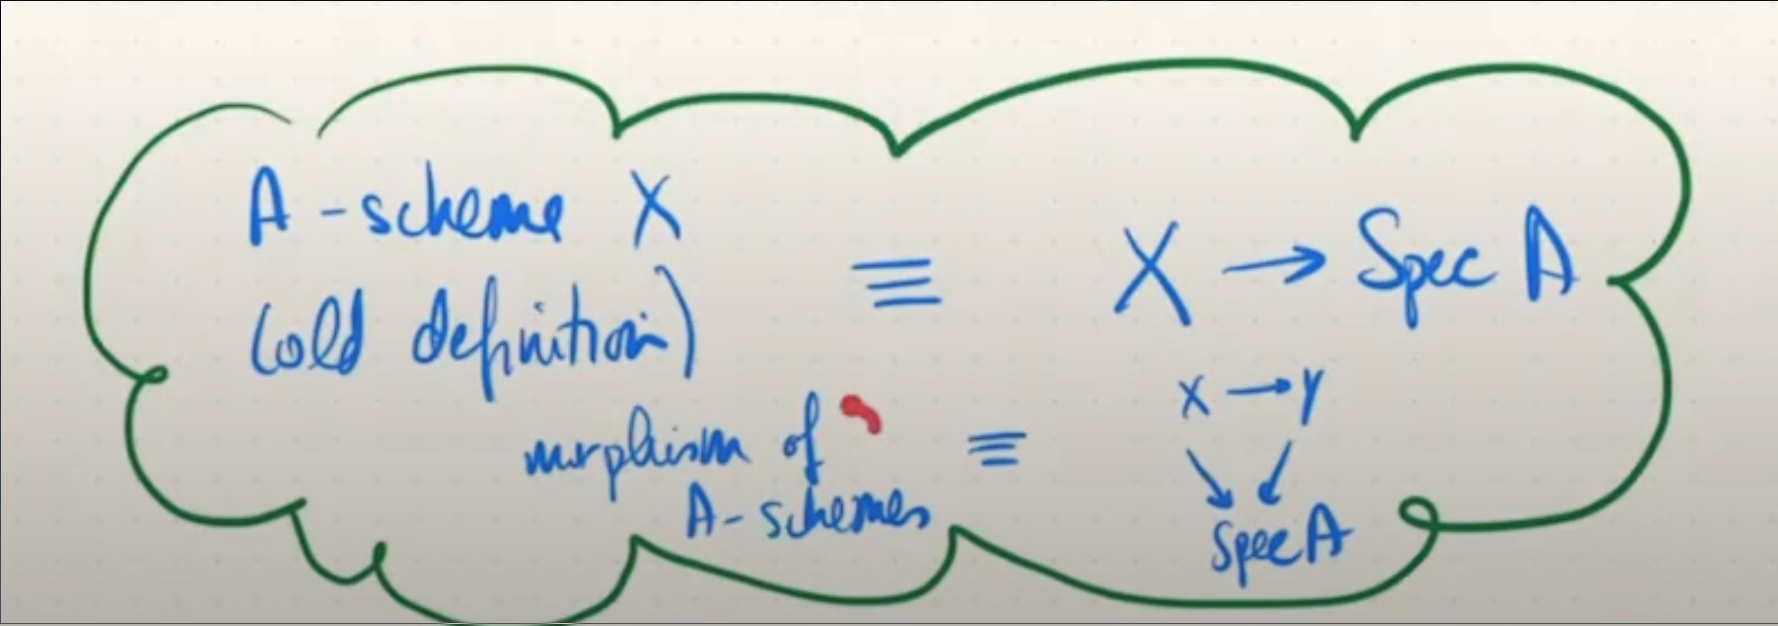 A-scheme X
(old definition)
≡
X → Spec A
morphism of
A-schemes
≡
X → Y
↘ ↙
Spec A